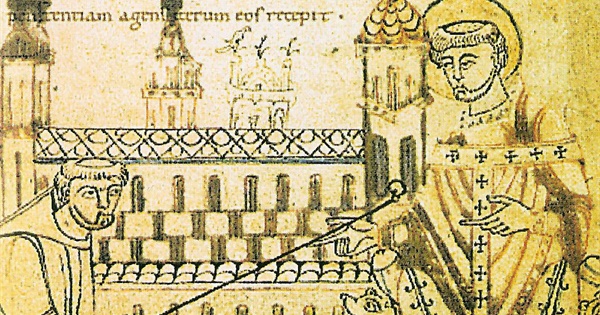 penitentiam agens iterum eos recepit .